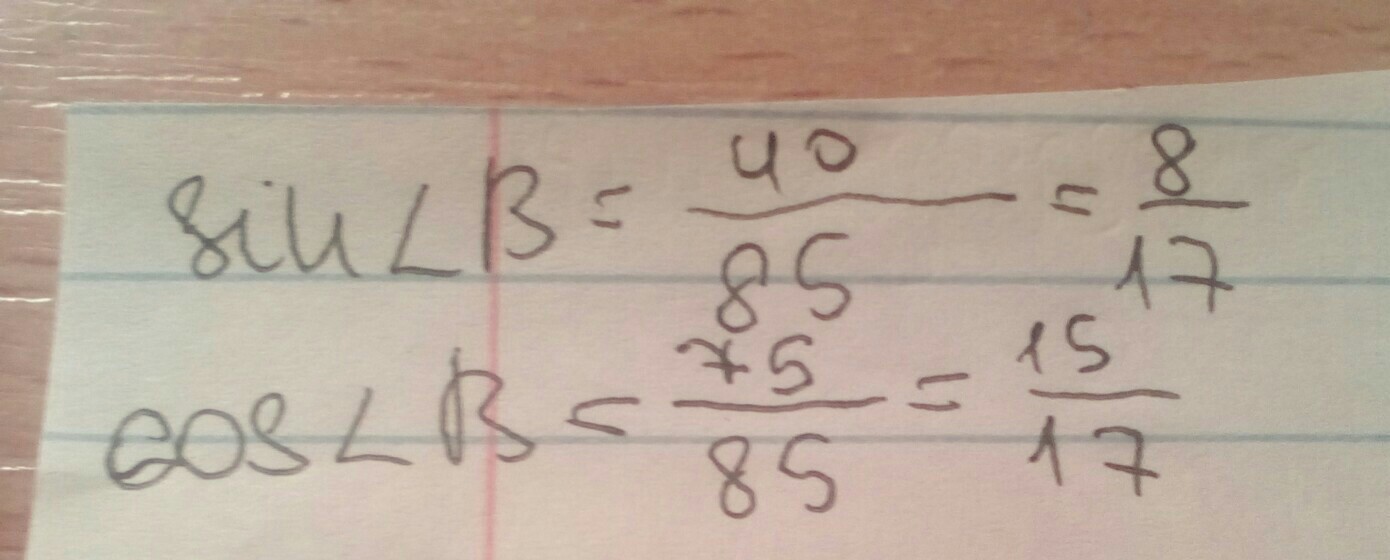 sin∠B = 40/85 = 8/17
cos∠B = 75/85 = 15/17